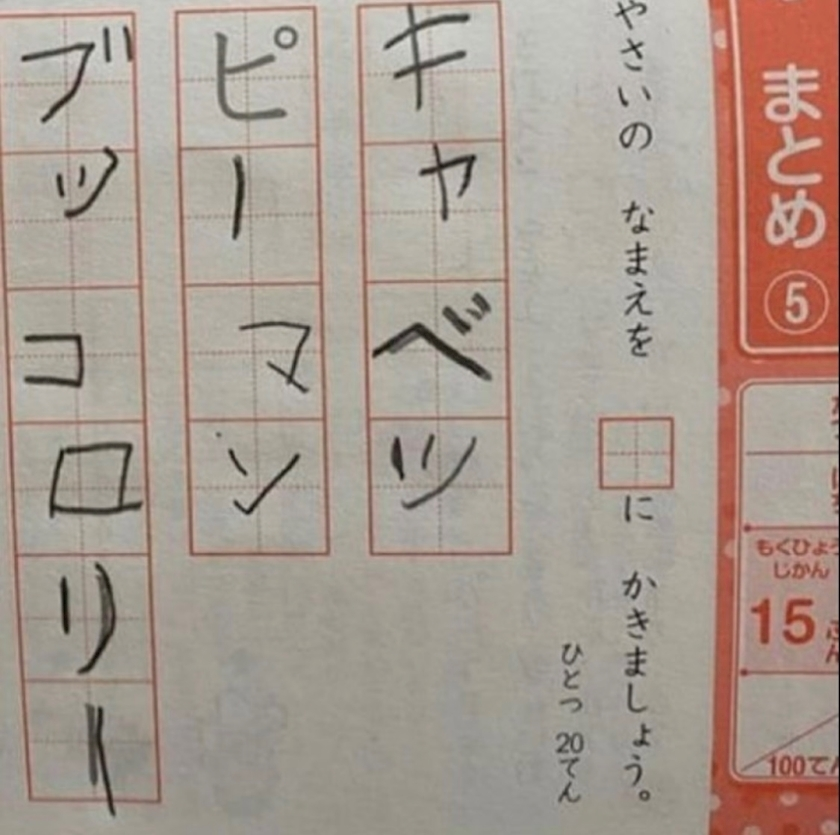 まとめ⑤
もくひょう
じかん
15
100てん
やさいの なまえを □に かきましょう。
ひとつ 20てん
キャベツ
ピーマン
ブッコロリー